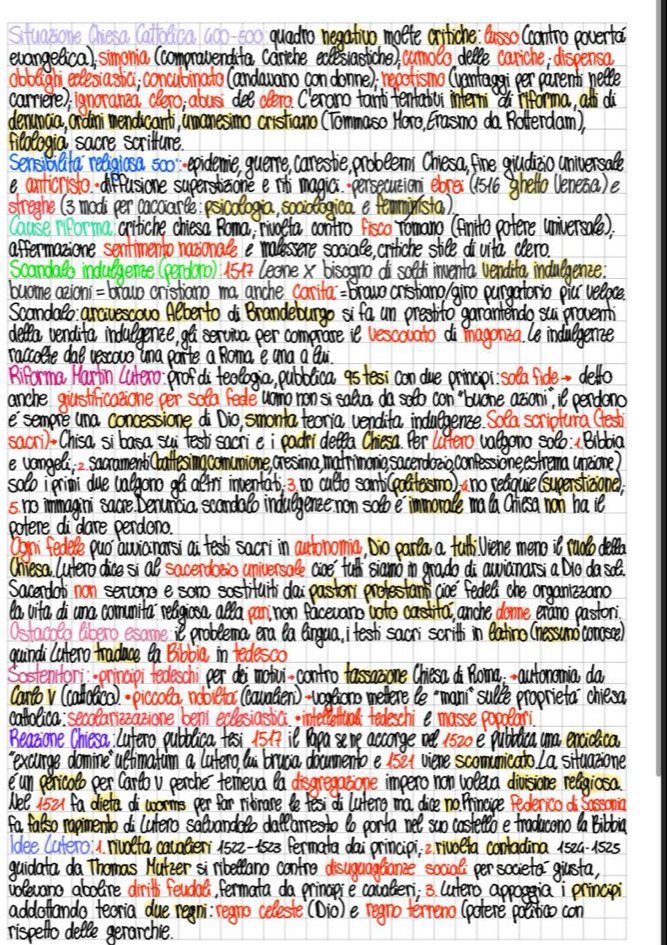 Situazione Chiesa Cattolica 400-500 quadro negativo molte critiche: lusso (contro povertà
evangelica), simonia (compravendita cariche ecclesiastiche), cumolo delle cariche, dispensa
obblighi eclesiastici, concubinato (andavano con donne), nepotismo (vantaggi per parenti nelle
carriere), ignoranza clero, abusi del clero. C'erano tanti tentativi interni di riforma, atti di
denuncia, ordini mendicanti, umanesimo cristiano (Tommaso Moro, Erasmo da Rotterdam),
filologia sacre scritture.
Sensibilità religiosa 500: •epidemie, guerre, carestie, problemi Chiesa, fine giudizio universale
e anticristo. •diffusione superstizione e riti magici. •persecuzioni ebrei (1516 ghetto Venezia) e
streghe (3 modi per cacciarle: psicologia, sociologica e femminista)
Cause riforma: critiche chiesa Roma, rivolta contro fisco romano (finito potere universale),
affermazione sentimento nazionale e malessere sociale, critiche stile di vita clero.
Scandalo indulgenze (perdono): 1517 Leone X bisogno di soldi inventa vendita indulgenze:
buone azioni = bravo cristiano ma anche carità = bravo cristiano/giro purgatorio più veloce.
Scandalo: arcivescovo Alberto di Brandeburgo si fa un prestito garantendo sui proventi
della vendita indulgenze, gli serviva per comprare il vescovato di magonza. Le indulgenze
raccolte dal vescovo una parte a Roma e una a lui.
Riforma Martin Lutero: prof di teologia, pubblica 95 tesi con due principi: sola fide → detto
anche giustificazione per sola fede uomo non si salva da solo con "buone azioni", il perdono
è sempre una concessione di Dio, smonta teoria vendita indulgenze. Sola scriptura (testi
sacri)→ Chisa si basa sui testi sacri e i padri della Chiesa. Per Lutero valgono solo: 1. Bibbia
e vangeli, 2. sacramenti (battesimo, comunione, cresima, matrimonio, sacerdozio, confessione, estrema unzione)
solo i primi due valgono gli altri inventati, 3. no culto santi (politeismo) 4. no reliquie (superstizione),
5. no immagini sacre. Denuncia scandalo indulgenze: non solo è immorale ma la Chiesa non ha il
potere di dare perdono.
Ogni fedele può avvicinarsi ai testi sacri in autonomia, Dio parla a tutti. Viene meno il ruolo della
Chiesa. Lutero dice si al sacerdozio universale cioè tutti siamo in grado di avvicinarsi a Dio da soli.
Sacerdoti non servono e sono sostituiti dai pastori protestanti cioè fedeli che organizzano
la vita di una comunità religiosa alla pari, non facevano voto castità, anche donne erano pastori.
Ostacolo libero esame: il problema era la lingua, i testi sacri scritti in latino (nessuno conosce)
quindi Lutero traduce la Bibbia in tedesco
Sostenitori: •principi tedeschi per dei motivi → contro tassazione Chiesa di Roma, → autonomia da
Carlo V (cattolico). •piccola nobiltà (cavalieri) → vogliono mettere le "mani" sulle proprietà chiesa
cattolica: secolarizzazione beni eclesiastici. •intellettuali tedeschi e masse popolari.
Reazione Chiesa: Lutero pubblica tesi 1517 il Papa se ne accorge nel 1520 e pubblica una enciclica
"excurge domine" ultimatum a Lutero, lui brucia documento e 1521 viene scomunicato. La situazione
è un pericolo per Carlo V perchè temeva la disgregazione impero non voleva divisione religiosa.
Nel 1521 fa dieta di worms per far ritirare le tesi di Lutero ma dice no. Principe Federico di Sassonia
fa falso rapimento di Lutero salvandolo dall'arresto lo porta nel suo castello e traducono la Bibbia
Idee Lutero: 1. rivolta cavalieri 1522-1523 fermata dai principi, 2. rivolta contadina 1524-1525
guidata da Thomas Mutzer si ribellano contro disuguaglianze sociali per società giusta,
volevano abolire diritti feudali, fermata da principi e cavalieri; 3. Lutero appoggia i principi
addottando teoria due regni: regno celeste (Dio) e regno terreno (potere politico con
rispetto delle gerarchie.